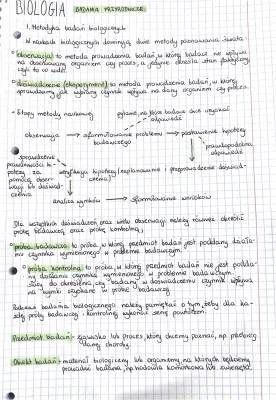 BIOLOGIA BADANIA PRZYRODNICZE
1. Metodyka badań biologicznych
W naukach biologicznych dominują dwie metody poznawania świata:
obserwacja - to metoda prowadzenia badań, w której badacz nie wpływa
na obserwowany organizm czy proces, a jedynie określa stan faktyczny,
czyli to co widzi.
doświadczenie (eksperyment) to metoda prowadzenia badań, w której
sprawdzamy jak wybrany czynnik wpływa na dany organizm czy proces.
Etapy metody naukowej
pytanie, na które badacz chce uzyskać
odpowiedź
obserwacja → sformułowanie problemu → postawienie hipotezy
badawczego
prawdopodobna
odpowiedź
sprawdzenie
prawdziwości hi-
potezy za
pomocą obser-
wacji lub doświad-
czenia
weryfikacja hipotezy (zaplanowanie i przeprowadzenie doświad-
czenia)
analiza wyników → sformułowanie wniosków
Dla wszystkich doświadczeń oraz wielu obserwacji należy również określić
próbę badawczą oraz próbę kontrolną;
próba badawcza to próba, w której przedmiot badań jest poddany działa-
niu czynnika wymienionego w problemie badawczym;
próba kontrolna to próba w której przedmiot badań nie jest podda-
ny działaniu czynnika wymienionego w problemie badawczym.
Służy do określenia, czy badany w doświadczeniu czynnik wpływa
na wyniki uzyskane w próbie badawczej
Podczas badania biologicznego należy pamiętać o tym, żeby dla każ-
dej próby badawczej i kontrolnej wykonać serię powtórzeń.
Przedmiot badań - zjawisko lub proces, który chcemy poznać, np. przebieg
danej choroby.
Obiekt badań - materiał biologiczny lub organizmy, na których będziemy
prowadzić badania, np. hodowla komórkowa lub zwierzęta.